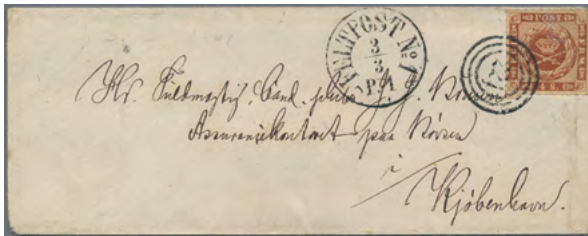 FELTPOST No. 1
3
3
P. 1
Hr. Fuldmægtig, Cand. phil.
Assurancekontoret paa Börsen
i
Kjöbenhavn.